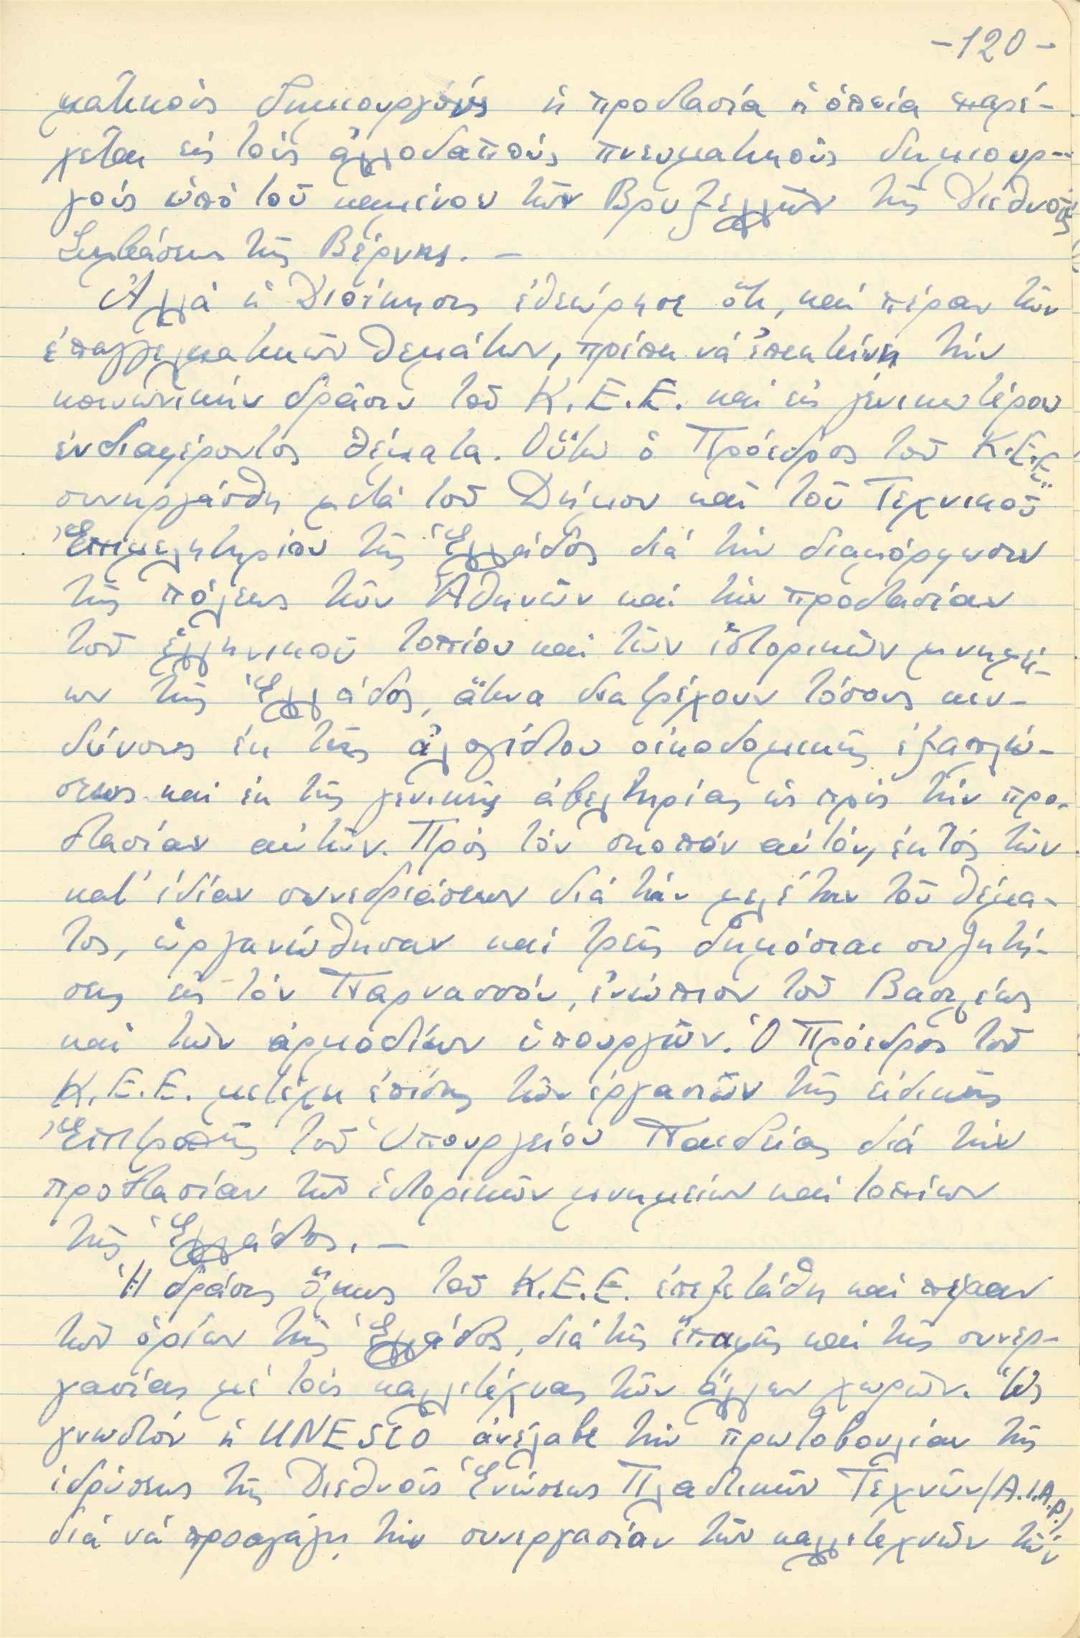 -120-
ματικούς δημιουργούς ἡ προστασία ἡ ὁποία παρέ-
χεται εἰς τούς ἀλλοδαπούς πνευματικούς δημιουρ-
γούς ὑπό τοῦ κειμένου τῶν Βρυξελλῶν τῆς Διεθνοῦς
Συμβάσεως τῆς Βέρνης. –
Ἀλλά ἡ Διοίκησις ἐθεώρησε ὅτι, καί πέραν τῶν
ἐπαγγελματικῶν θεμάτων, πρέπει νά ἐπεκτείνῃ τήν
κοινωνικήν δρᾶσιν τοῦ Κ.Ε.Ε. καί εἰς γενικωτέρου
ἐνδιαφέροντος θέματα. Οὕτω ὁ Πρόεδρος τοῦ Κ.Ε.Ε.
συνηργάσθη μετά τοῦ Δήμου καί τοῦ Τεχνικοῦ
Ἐπιμελητηρίου τῆς Ἑλλάδος διά τήν διαμόρφωσιν
τῆς πόλεως τῶν Ἀθηνῶν καί τήν προστασίαν
τοῦ ἑλληνικοῦ τοπίου καί τῶν ἱστορικῶν μνημεί-
ων τῆς Ἑλλάδος, ἅτινα διατρέχουν τόσους κιν-
δύνους ἐκ τῆς ἀλογίστου οἰκοδομικῆς ἐξαπλώ-
σεως καί ἐκ τῆς γενικῆς ἀβελτηρίας ὡς πρός τήν προ-
στασίαν αὐτῶν. Πρός τόν σκοπόν αὐτόν, ἐκτός τῶν
κατ' ἰδίαν συνεδριάσεων διά τήν μελέτην τοῦ θέμα-
τος, ὠργανώθησαν καί τρεῖς δημόσιαι συζητή-
σεις εἰς τόν Παρνασσόν, ἐνώπιον τοῦ Βασιλέως
καί τῶν ἁρμοδίων ὑπουργῶν. Ὁ Πρόεδρος τοῦ
Κ.Ε.Ε. μετέχει ἐπίσης τῶν ἐργασιῶν τῆς εἰδικῆς
Ἐπιτροπῆς τοῦ Ὑπουργείου Παιδείας διά τήν
προστασίαν τῶν ἱστορικῶν μνημείων καί τοπίων
τῆς Ἑλλάδος. –
Ἡ δρᾶσις ὅμως τοῦ Κ.Ε.Ε. ἐπεξετάθη καί πέραν
τῶν ὁρίων τῆς Ἑλλάδος, διά τῆς ἐπαφῆς καί τῆς συνερ-
γασίας μέ τούς καλλιτέχνας τῶν ἄλλων χωρῶν. Ὡς
γνωστόν ἡ UNESCO ἀνέλαβε τήν πρωτοβουλίαν τῆς
ἱδρύσεως τῆς Διεθνοῦς Ἑνώσεως Πλαστικῶν Τεχνῶν (A.I.A.P.)
διά νά προαγάγῃ τήν συνεργασίαν τῶν καλλιτεχνῶν τῶν